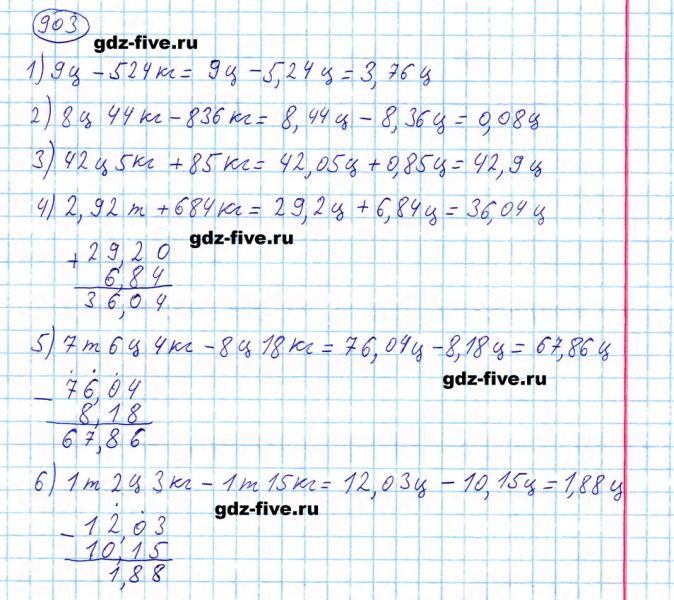 903
gdz-five.ru
1) 9ц - 524кг = 9ц - 5,24ц = 3,76ц
2) 8ц 44кг - 836кг = 8,44ц - 8,36ц = 0,08ц
3) 42ц 5кг + 85кг = 42,05ц + 0,85ц = 42,9ц
4) 2,92т + 684кг = 29,2ц + 6,84ц = 36,04ц
gdz-five.ru
+ 29,20
6,84
36,04
5) 7т 6ц 4кг - 8ц 18кг = 76,04ц - 8,18ц = 67,86ц
gdz-five.ru
- 76,04
8,18
67,86
6) 1т 2ц 3кг - 1т 15кг = 12,03ц - 10,15ц = 1,88ц
gdz-five.ru
- 12,03
10,15
1,88